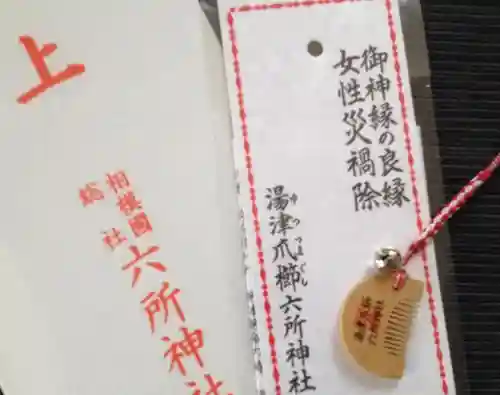 上
相模國
総社
六所神社
御神縁の良縁
女性災禍除
湯津爪櫛
ゆつつまぐし
六所神社